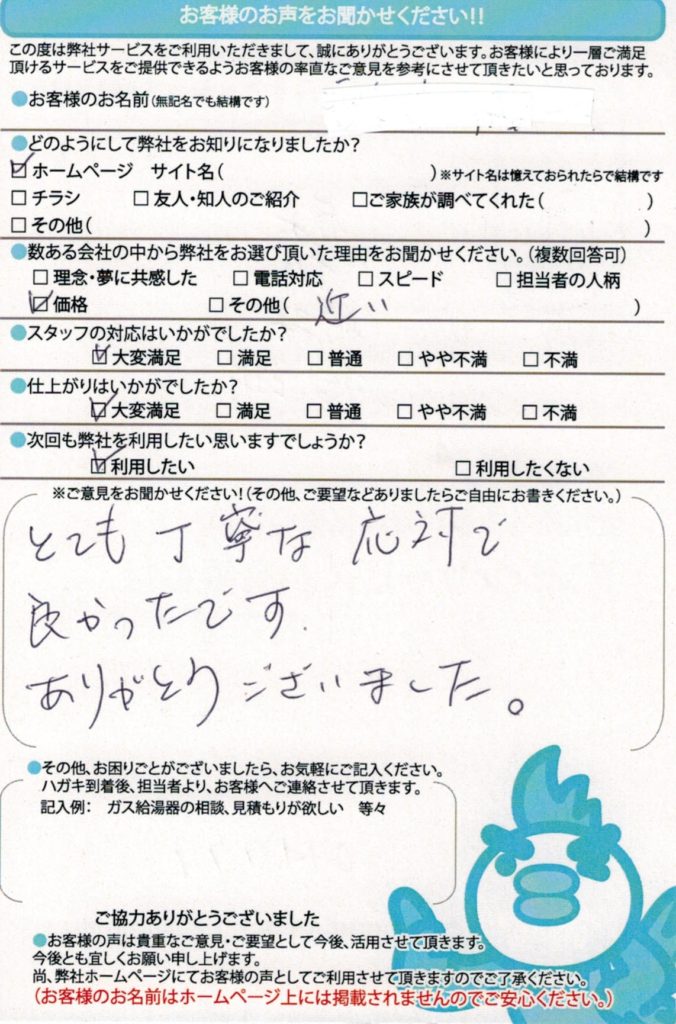 お客様のお声をお聞かせください!!
この度は弊社サービスをご利用いただきまして、誠にありがとうございます。お客様により一層ご満足
頂けるサービスをご提供できるようお客様の率直なご意見を参考にさせて頂きたいと思っております。
●お客様のお名前(無記名でも結構です)
●どのようにして弊社をお知りになりましたか?
☑ホームページ サイト名( )※サイト名は憶えておられたらで結構です
□チラシ □友人・知人のご紹介 □ご家族が調べてくれた( )
□その他( )
●数ある会社の中から弊社をお選び頂いた理由をお聞かせください。(複数回答可)
□理念・夢に共感した □電話対応 □スピード □担当者の人柄
☑価格 □その他( 近い )
●スタッフの対応はいかがでしたか?
☑大変満足 □満足 □普通 □やや不満 □不満
●仕上がりはいかがでしたか?
☑大変満足 □満足 □普通 □やや不満 □不満
●次回も弊社を利用したい思いますでしょうか?
☑利用したい □利用したくない
※ご意見をお聞かせください!(その他、ご要望などありましたらご自由にお書きください。)
とても丁寧な応対で
良かったです.
ありがとうございました。
●その他、お困りごとがございましたら、お気軽にご記入ください。
ハガキ到着後、担当者より、お客様へご連絡させて頂きます。
記入例: ガス給湯器の相談、見積もりが欲しい 等々
ご協力ありがとうございました
●お客様の声は貴重なご意見・ご要望として今後、活用させて頂きます。
今後とも宜しくお願い申し上げます。
尚、弊社ホームページにてお客様の声としてご利用させて頂きますのでご了承ください。
(お客様のお名前はホームページ上には掲載されませんのでご安心ください。)